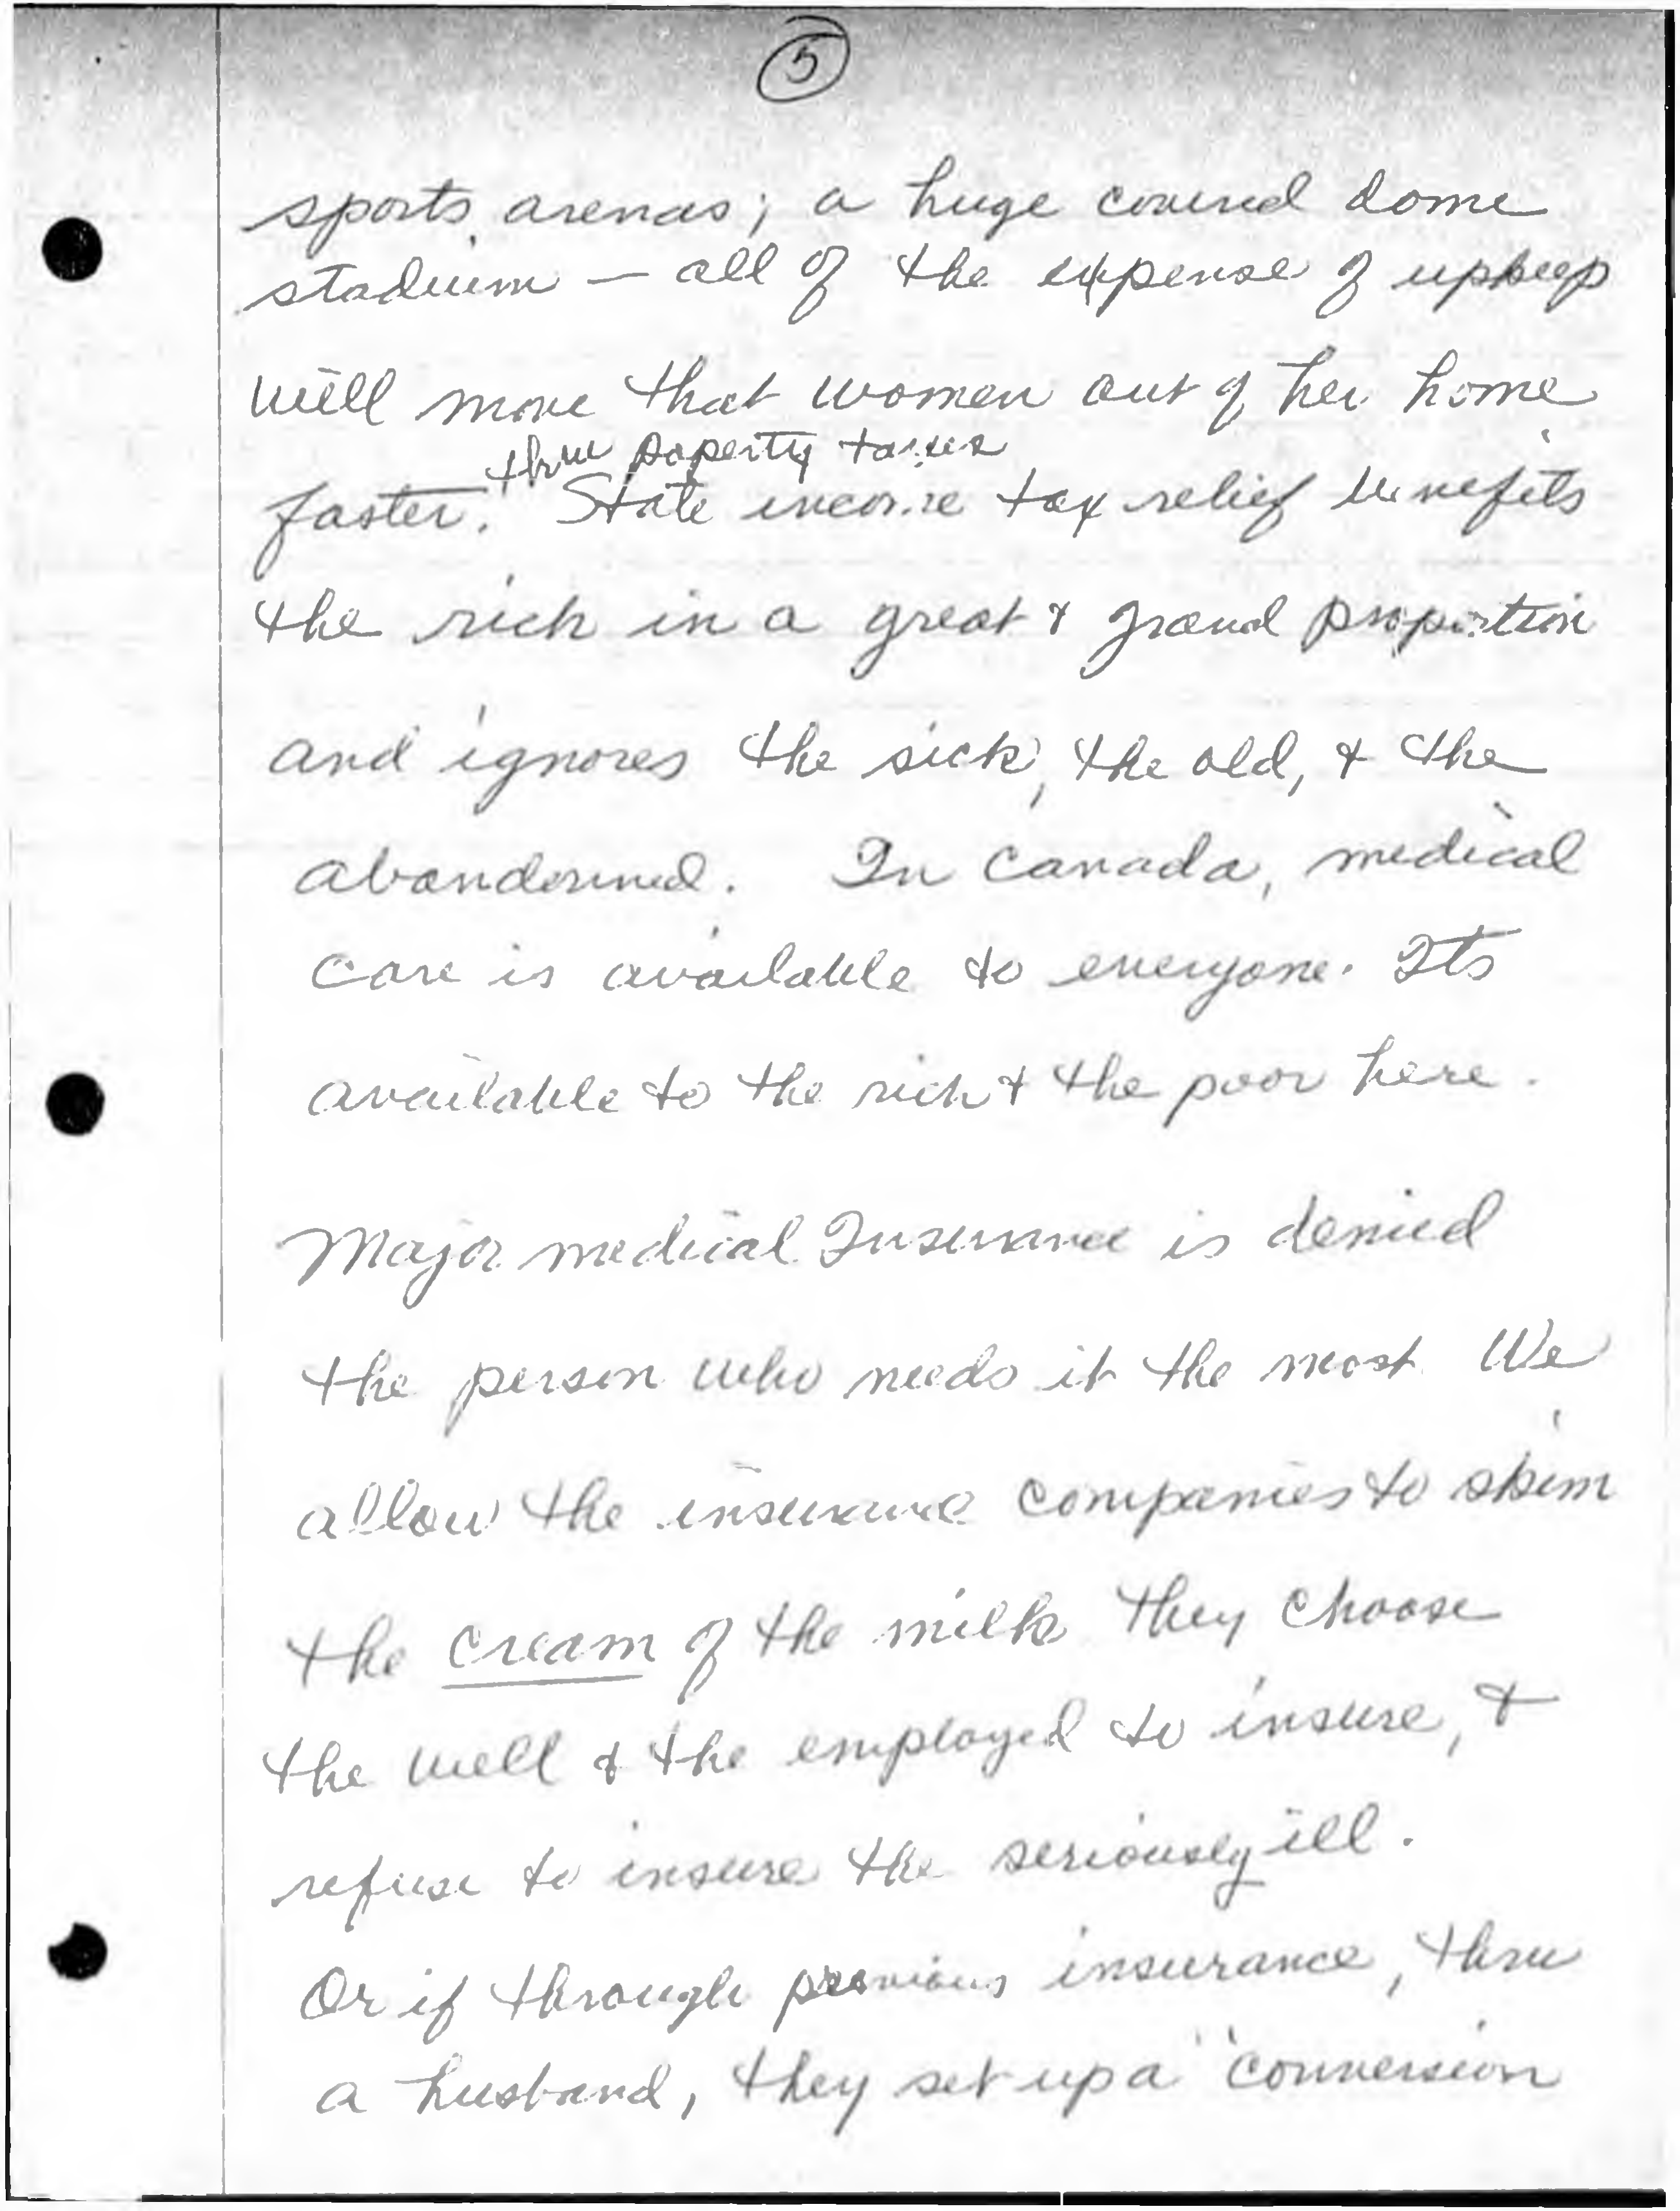 5
sports arenas; a huge covered dome
stadium — all of the expense of upkeep
will move that women out of her home
thru paperity taxes
faster. State income tax relief benefits
the rich in a great & grand proportion
and ignores the sick, the old, & the
abandonned. In Canada, medical
care is available to everyone. Its
available to the rich & the poor here.
Major medical Insurance is denied
the person who needs it the most. We
allow the insurance companies to skim
the cream of the milk they choose
the well & the employed to insure, &
refuse to insure the seriously ill.
Or if through previous insurance, thru
a husband, they set up a "conversion